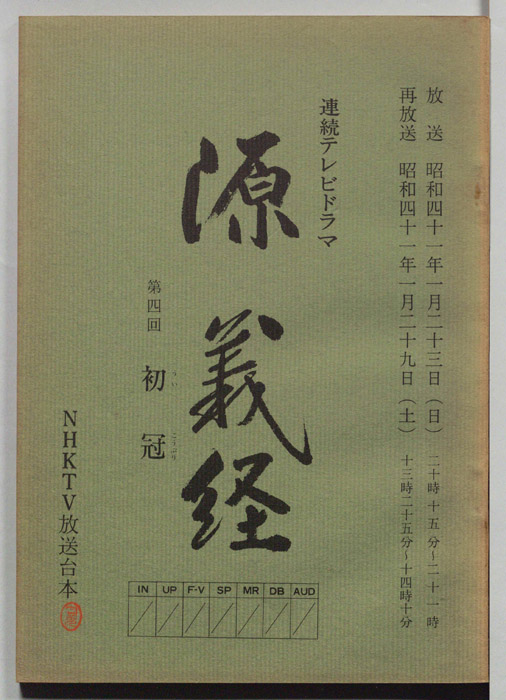 放送 昭和四十一年一月二十三日（日） 二十時十五分～二十一時
再放送 昭和四十一年一月二十九日（土） 十三時二十五分～十四時十分
連続テレビドラマ
源義経
第四回 初冠
うい こうぶり
NHKTV放送台本
IN UP F-V SP MR DB AUD